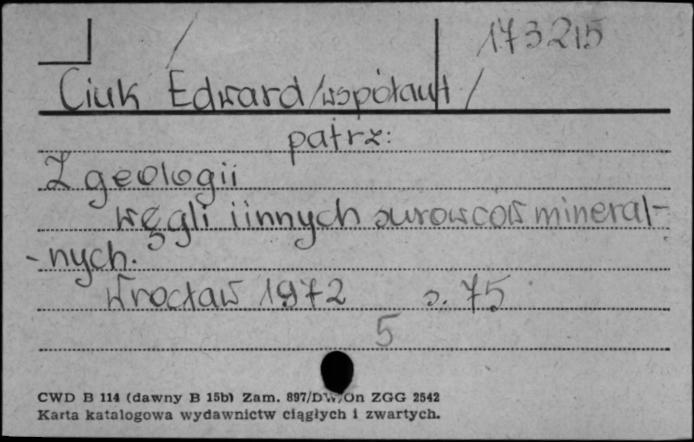 173215
Ciuk Edward /współaut/
patrz:
Z geologii
węgli i innych surowców mineral-
-nych.
Wrocław 1972 s. 75
5
CWD B 114 (dawny B 15b) Zam. 897/DW/On ZGG 2542
Karta katalogowa wydawnictw ciągłych i zwartych.